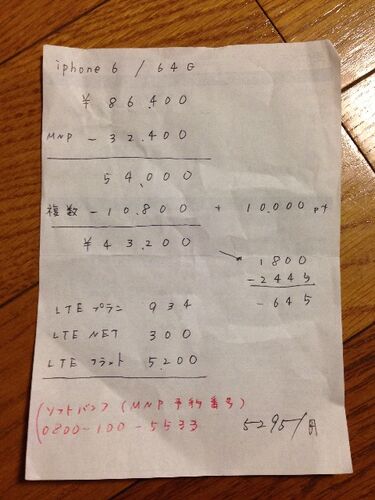 iphone 6 / 64G
¥ 86,400
MNP - 32,400
54,000
複数 - 10,800 + 10,000 pt
¥ 43,200
1800
- 2445
- 645
LTE プラン 934
LTE NET 300
LTE フラット 5,200
(ソフトバンク (MNP 予約番号)
0800-100-5533
5295/円